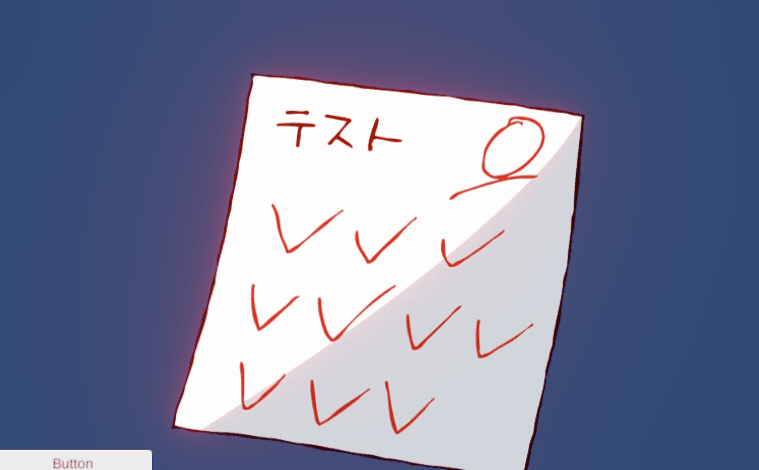 テスト 0
✓ ✓ ✓
✓ ✓ ✓ ✓
✓ ✓ ✓
Button